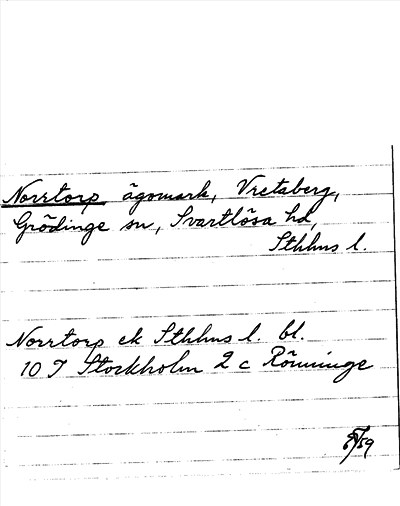 Norrtorp ägomark, Vretaberg,
Grödinge sn, Svartlösa hd,
Sthlms l.
Norrtorp ek Sthlms l. bl.
10 I Stockholm 2 c Rönninge